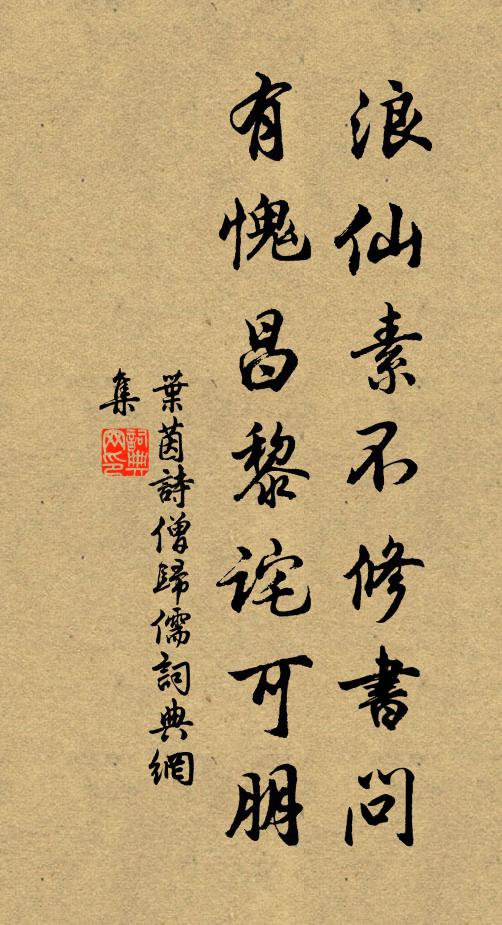 浪仙素不修書問
有愧昌黎詫可朋
葉茵詩僧歸儒詞典網
集
詞典
网印